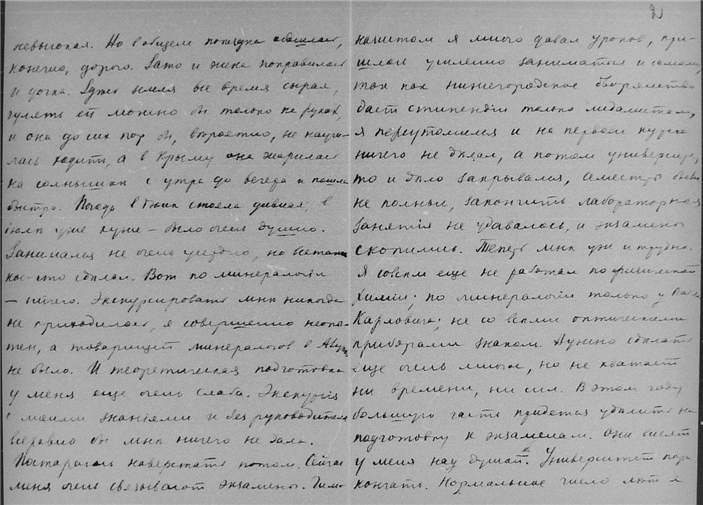 невысокая. Но в общем поездка обошлась,
конечно, дорого. Зато и жена поправилась
и дочка. Здесь земля все время сырая,
гулять ей можно бы только на руках,
и она до сих пор бы, вѣроятно, не научи-
лась ходить, а в Крыму она жарилась
на солнышкѣ с утра до вечера и пошла
быстро. Погода в июнѣ стояла дивная; в
июлѣ уже хуже – было очень душно.
Занимался не очень усердно, но все-таки
кое-что сдѣлал. Вот по минералогіи
– ничего. Экскурсировать мнѣ никогда
не приходилось, я совершенно неопы-
тен, а товарищей минералогов в
не было. И теоретическая подготовка
у меня еще очень слаба. Экскурсія
с моими знаніями и без руководителя
едва бы мнѣ ничего не дала.
Постараюсь наверстать потом. Сейчас
меня очень связывают экзамены. Гимн-
2
назистом я много давал уроков, при-
шлось усиленно заниматься и самому,
так как нижегородское дворянство
дает стипендіи только медалистам,
я переутомился и на первом курсѣ
ничего не дѣлал, а потом университет
то и дѣло закрывался, семестры были
не полные, закончить лабораторныя
занятія не удавалось, и экзамены
скопились. Теперь мнѣ уж и трудно.
Я совсѣм еще не работал по физической
химіи; по минералогіи только у
Карловича; не со всѣми оптическими
приборами знаком. Нужно сдѣлать
еще очень много, но не хватает
ни времени, ни сил. В этом году
большую часть придется удѣлить на
подготовку к экзаменам. Они висят
у меня над душой. Университет пора
кончать. Нормальное число лѣт я